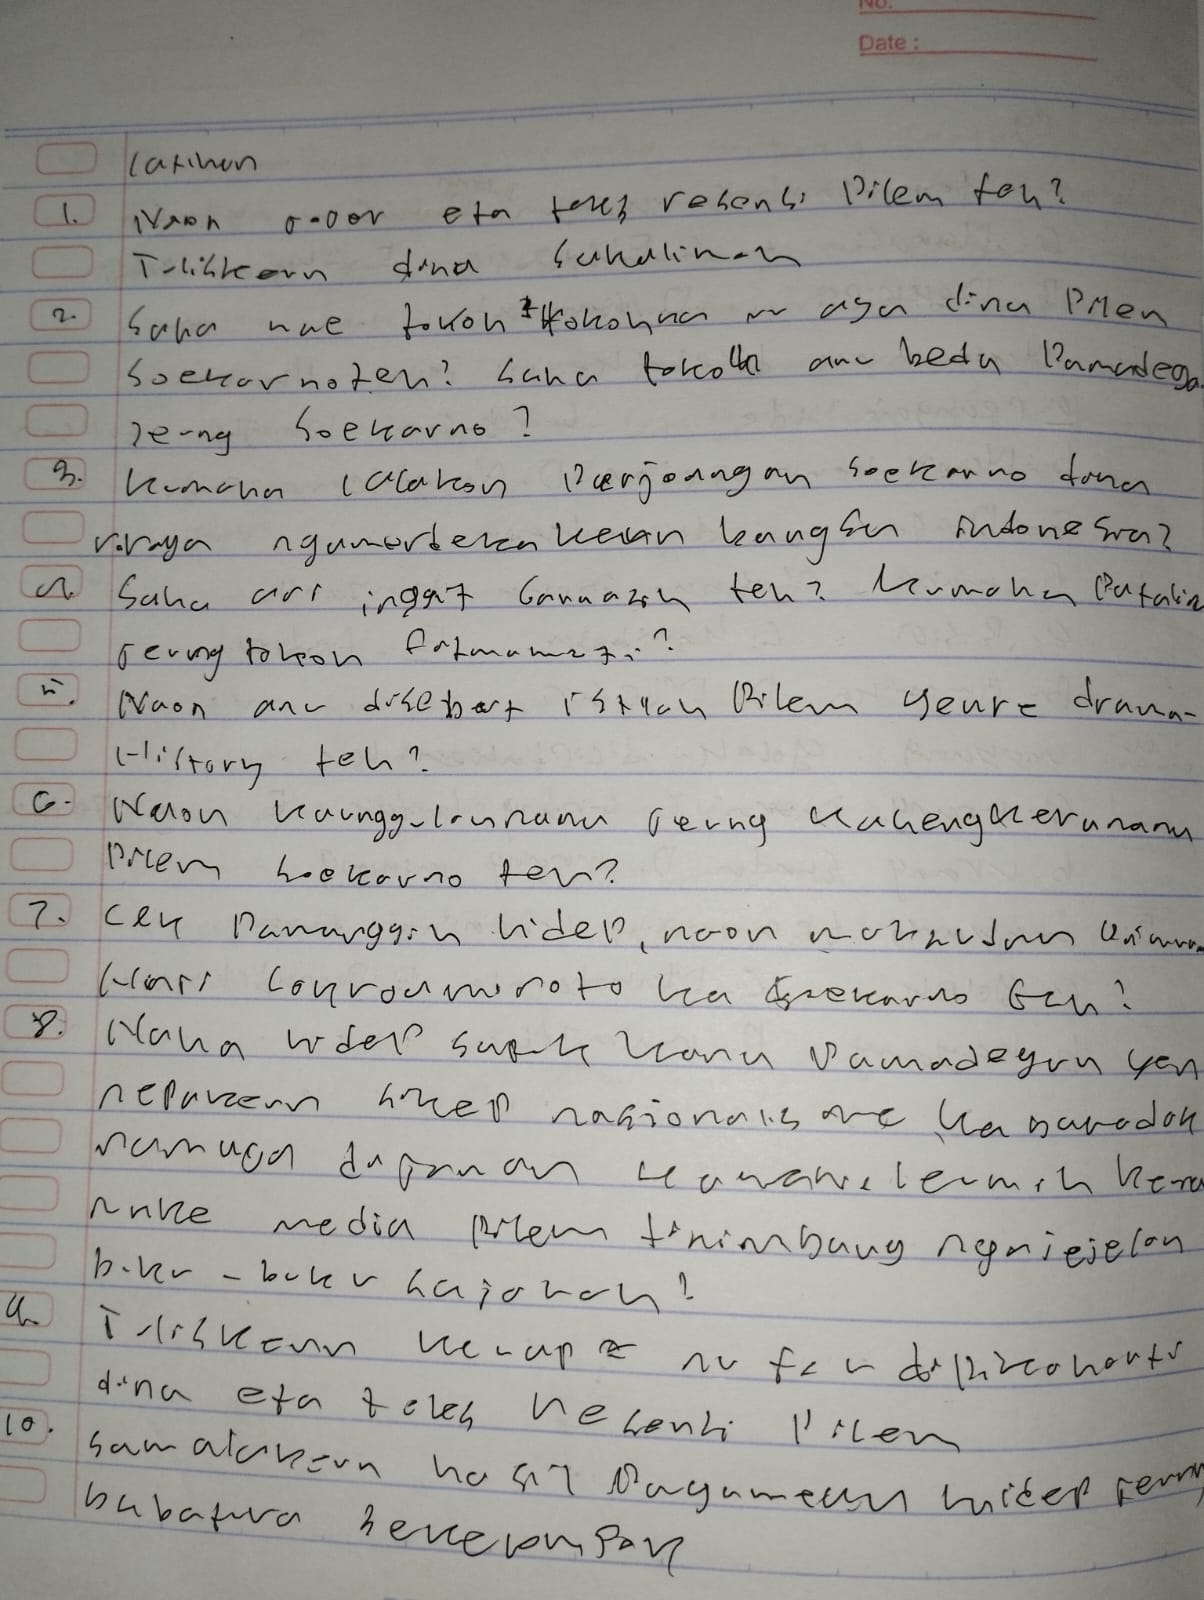 No.
Date :
Latihan
1. Naon eta teks resensi Pilem teh?
Tuliskeun dina sakalimah
2. Saha wae tokoh tokohna nu aya dina Pilem
Soekarno teh? Saha tokoh anu beda Pamadega
jeung Soekarno?
3. Kumaha lalakon Perjoangan Soekarno dina
ngamerdekakeun bangsa indonesia?
4. Saha ari inggit Garnasih teh? Kumaha Patalina
jeung tokoh Fatmawati?
5. Naon anu disebut istilah Pilem genre drama-
History teh?
6. Naon kaunggulanana jeung kahengkeranana
Pilem Soekarno teh?
7. Cek Pamanggih hidep, naon maksudna
Hos Cokroaminoto ka Soekarno teh?
8. Naha hidep satuju kana Pamadegan yen
nepakeun sikep nasionalisme ka barudak
rumuga jaman kawas leuwih kena
make media pilem tinimbang ngajejelan
buku-buku sajarah?
9. Tuliskeun kecap nu teu dipikaharti
dina eta teks Resensi Pilem
10. Samatakeun hasil Pagawean hidep jeung
babaturan sekelompok